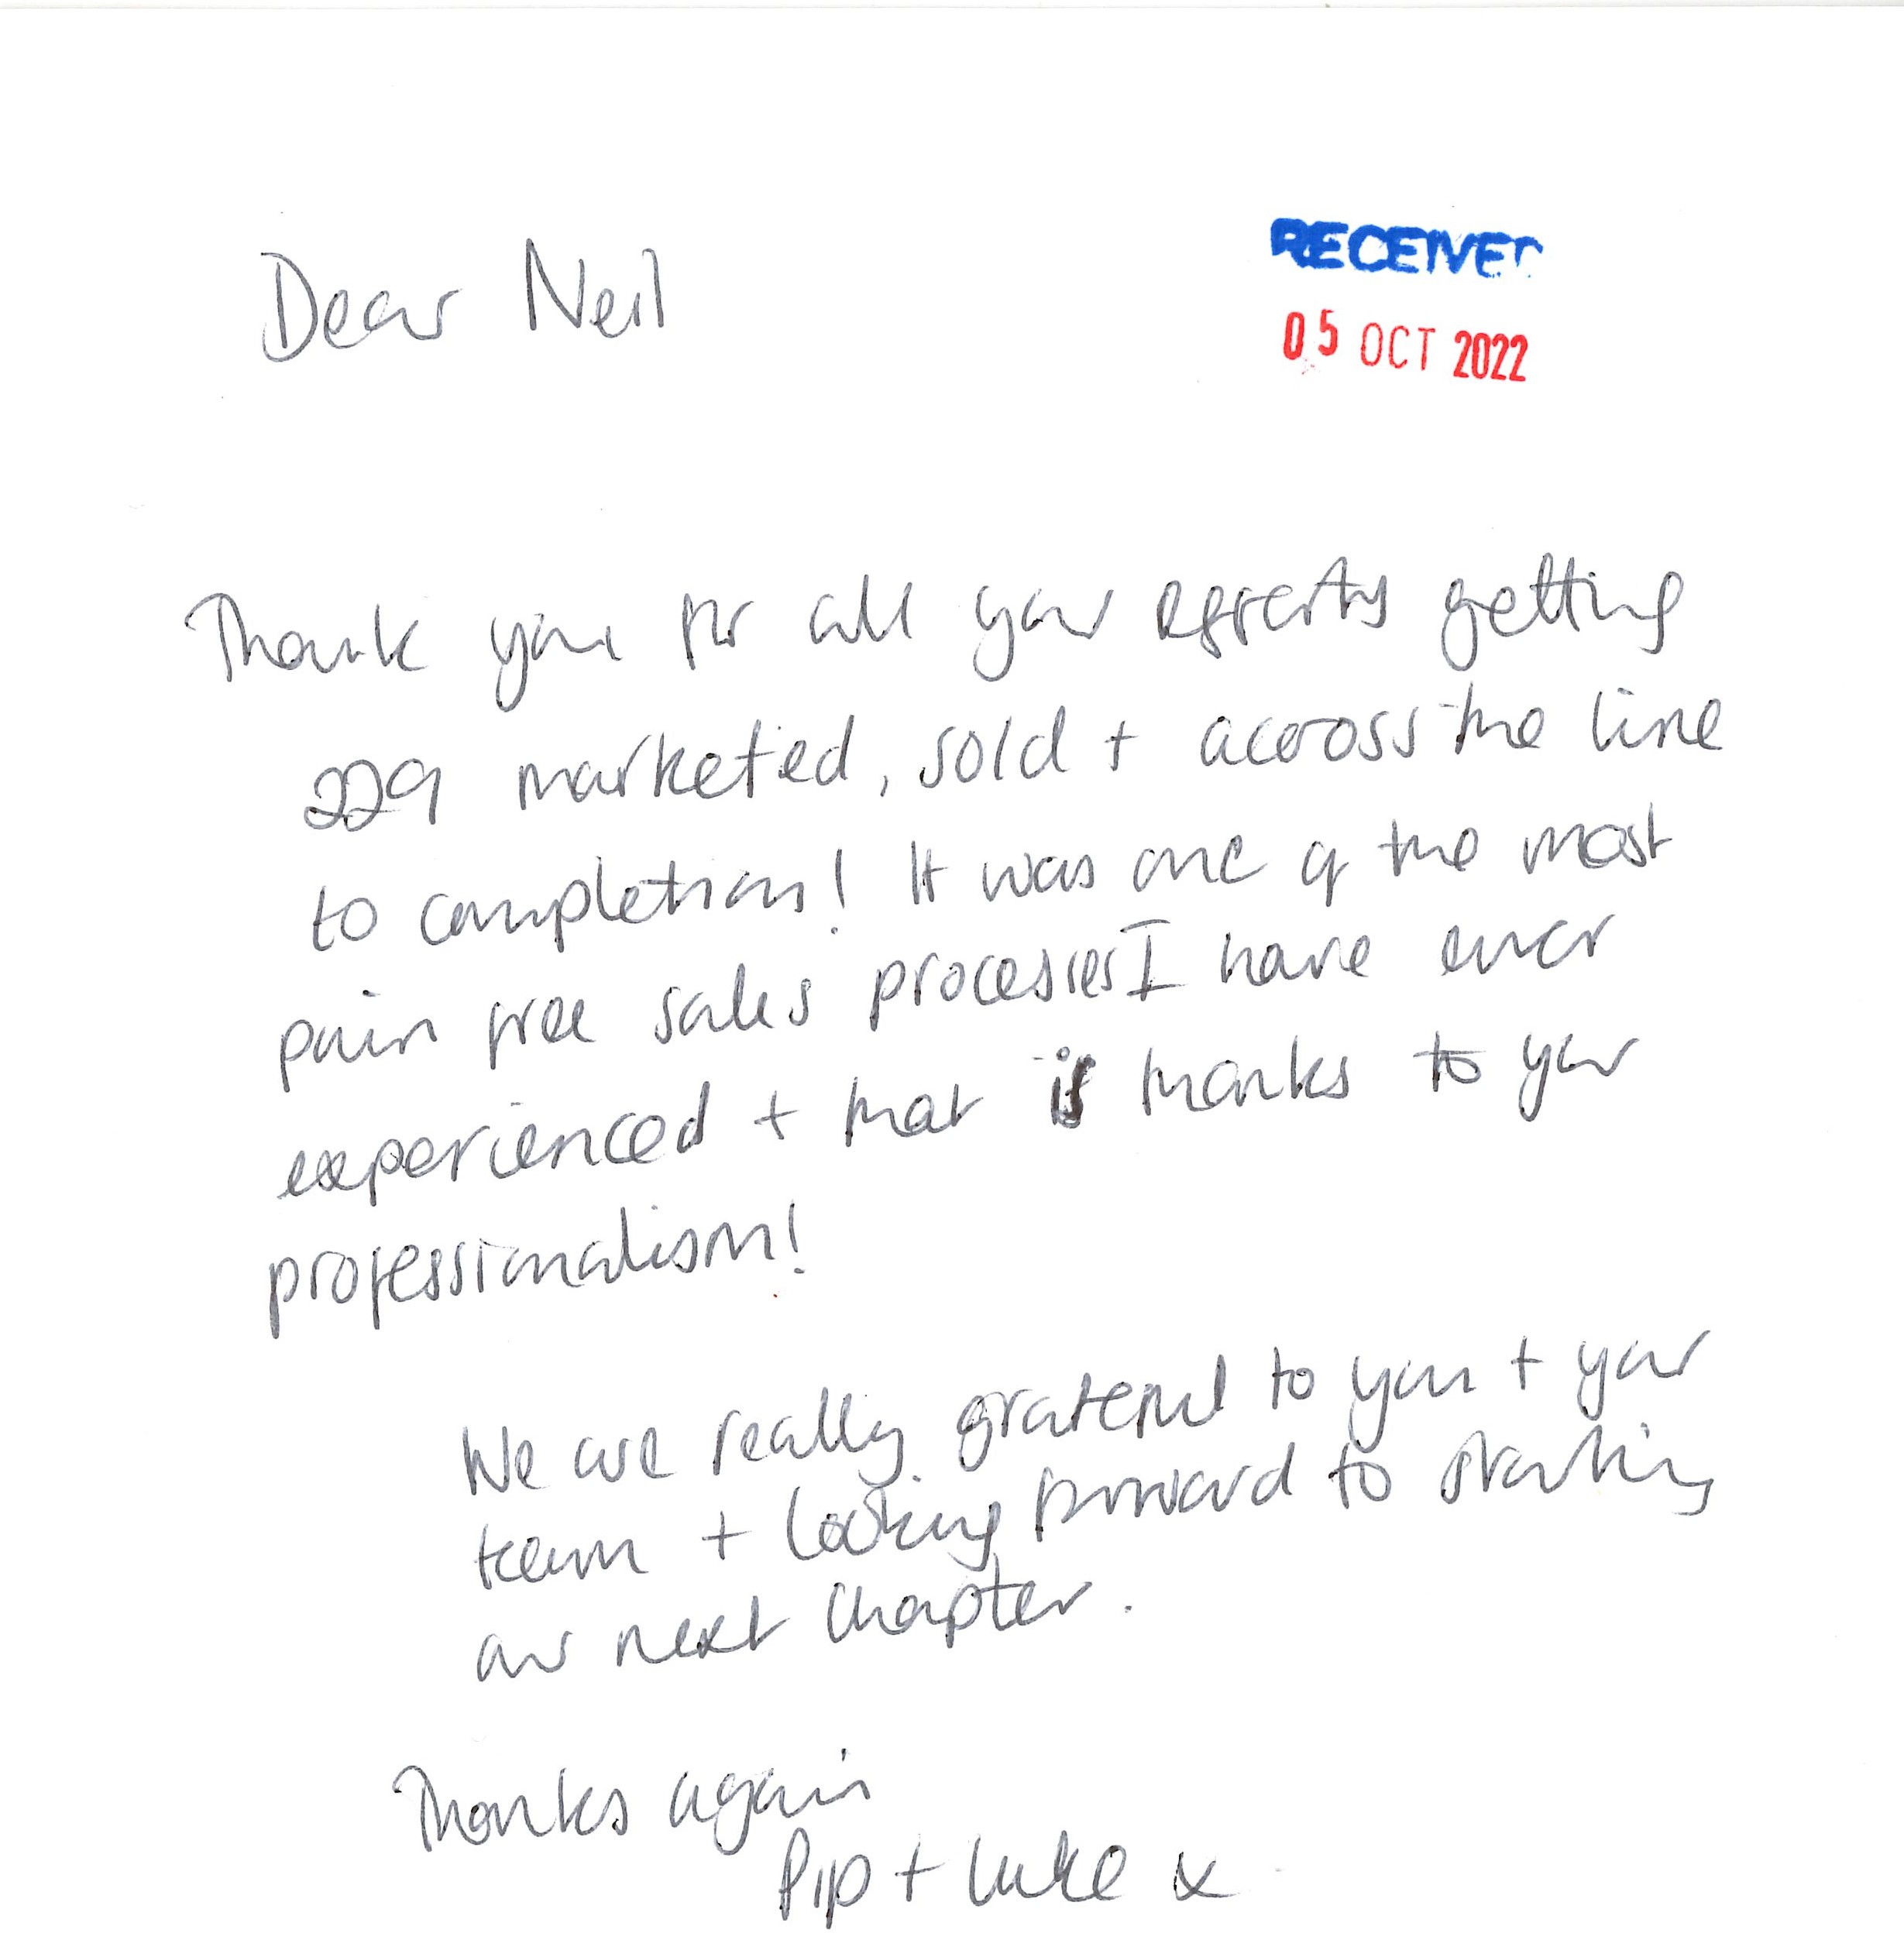 Dear Neil
RECEIVED
05 OCT 2022
Thank you for all your efforts getting
229 marketed, sold + across the line
to completion! It was one of the most
pain free sales processes I have ever
experienced + that is thanks to your
professionalism!
We are really grateful to you + your
team + looking forward to starting
our next chapter.
Thanks again
Pip + Luke x